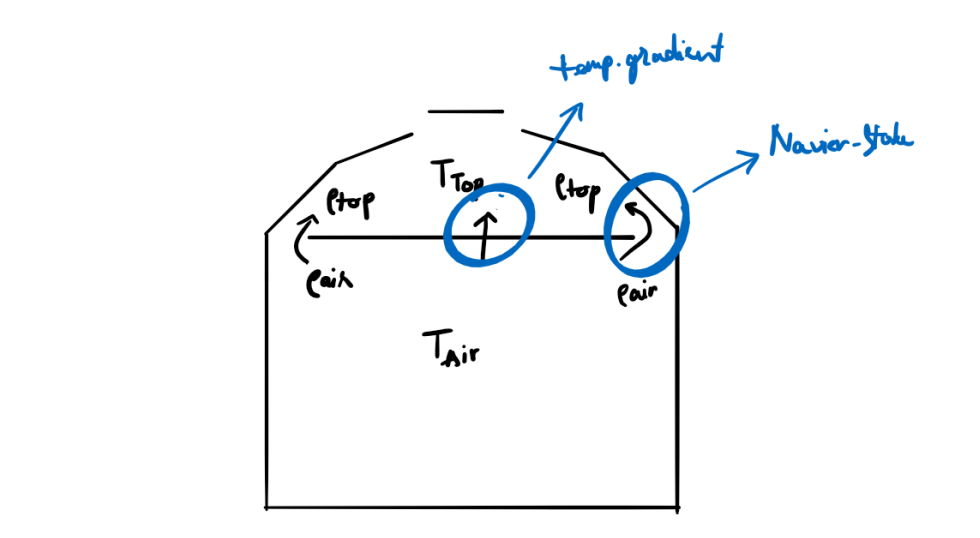 temp.gradient
Navier-Stoke
TTop
ρtop
ρtop
ρair
ρair
TAir